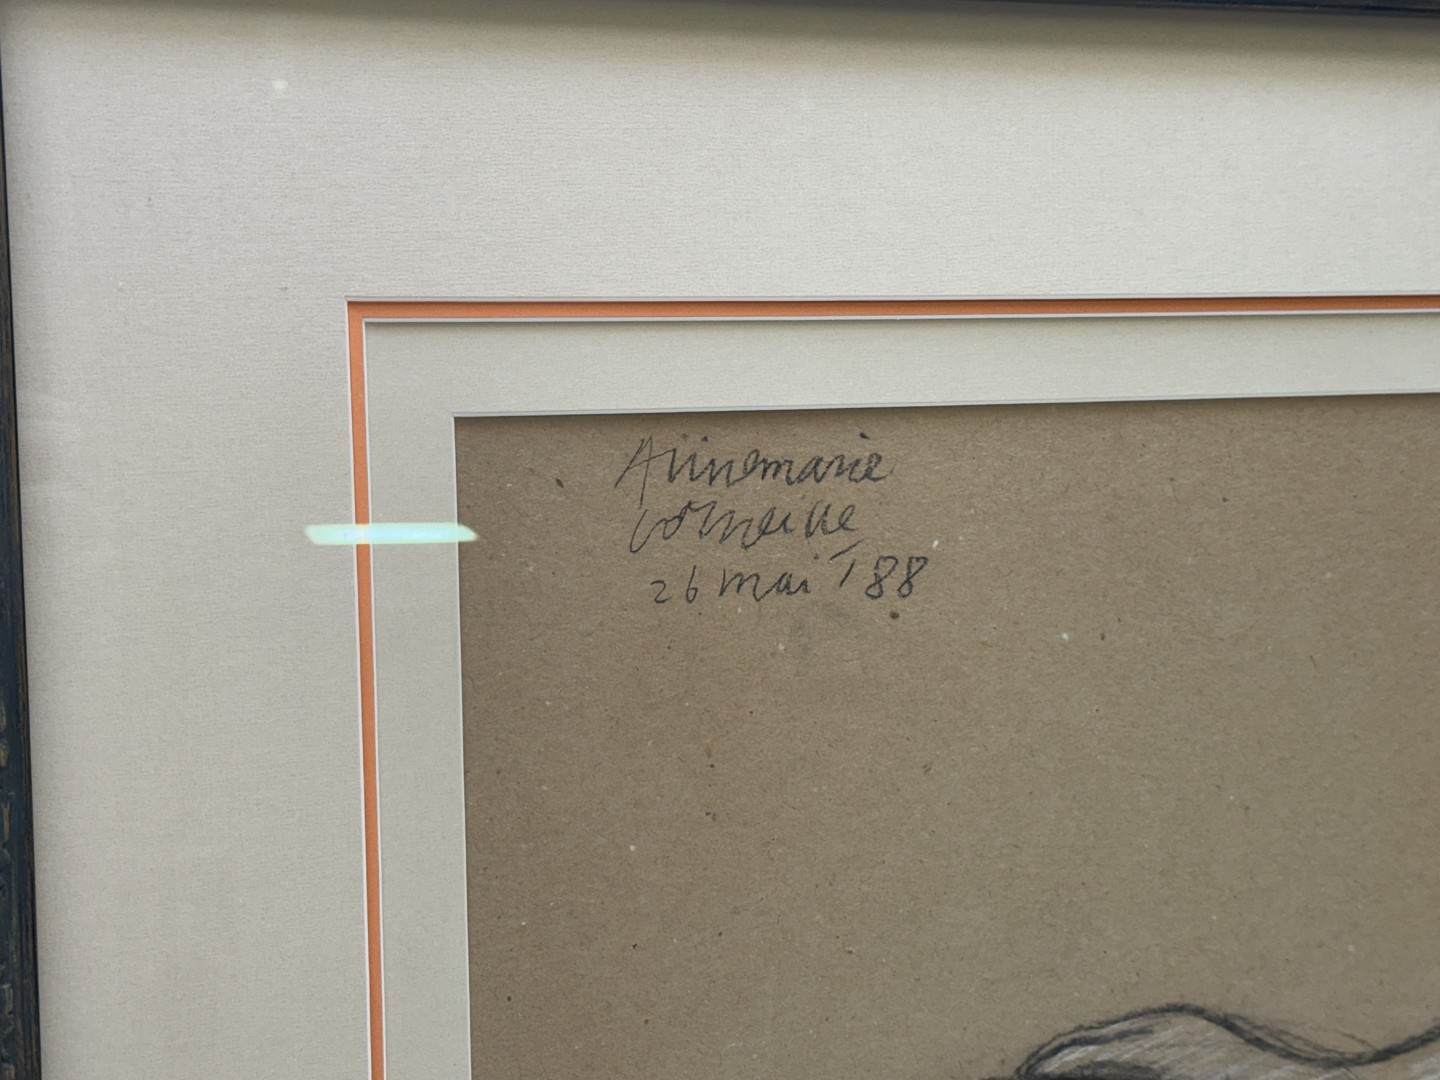 Annemarie
Corneille
26 mai '88